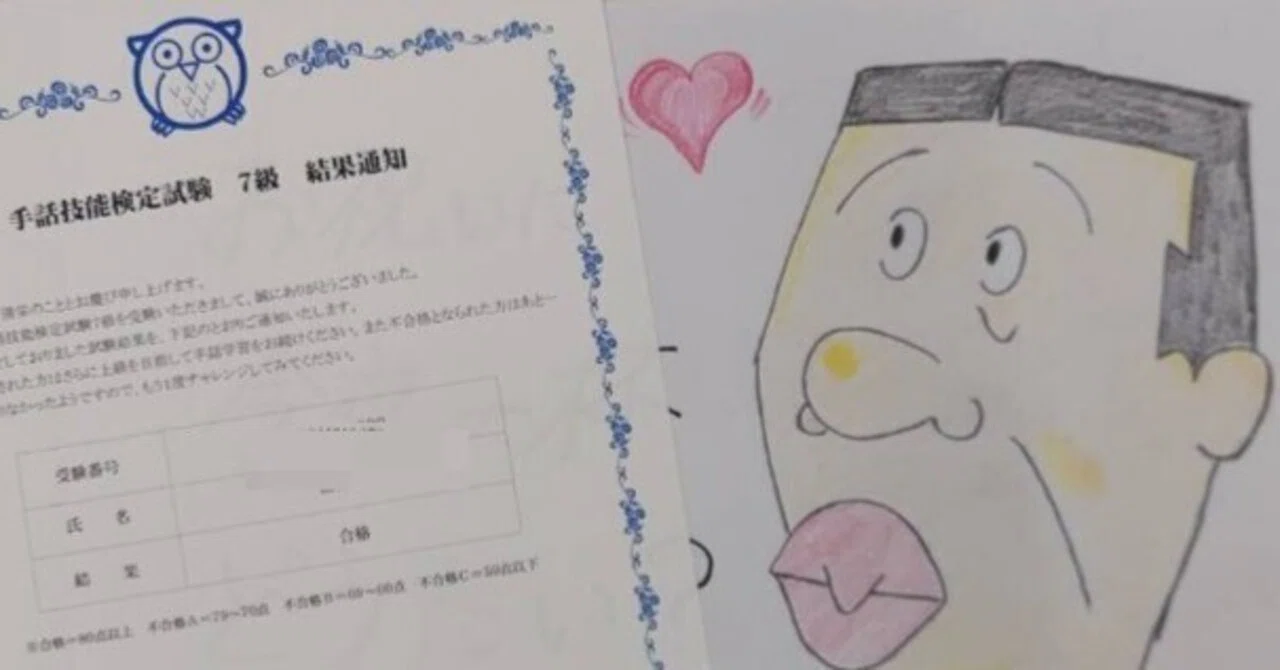 手話技能検定試験　7級　結果通知
清栄のこととお慶び申し上げます。
技能検定試験7級を受験いただきまして、誠にありがとうございました。
しておりました試験結果を、下記のとおりご通知いたします。
された方はさらに上級を目指して手話学習をお続けください。また不合格となられた方はあと一
なかったようですので、もう1度チャレンジしてみてください。
受験番号
氏　名
結　果　合格
※合格＝80点以上　不合格A＝79～70点　不合格B＝69～60点　不合格C＝59点以下